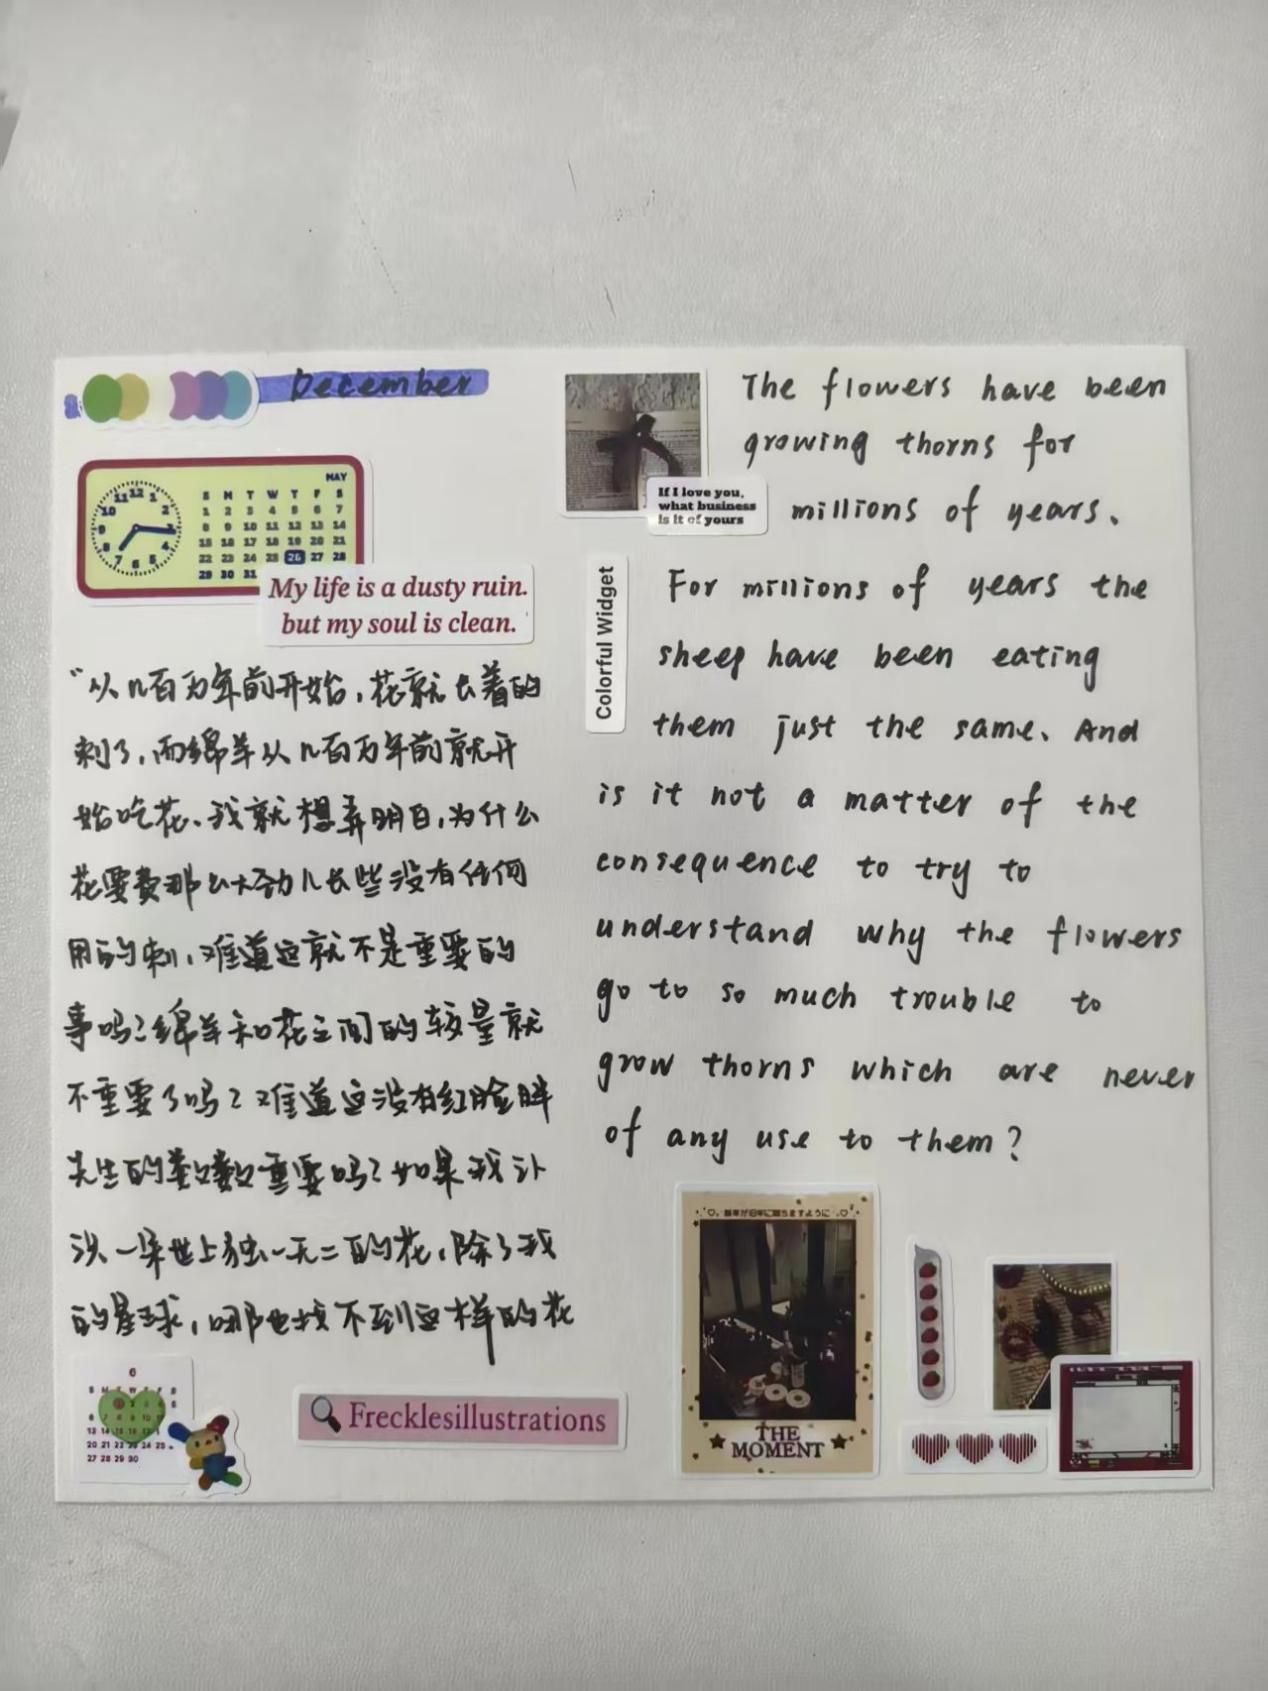 December
MAY
S M T W T F S
1 2 3 4 5 6 7
8 9 10 11 12 13 14
15 16 17 18 19 20 21
22 23 24 25 26 27 28
29 30 31
My life is a dusty ruin.
but my soul is clean.
“从几百万年前开始,花就长着的
刺了,而绵羊从几百万年前就开
始吃花、我就想弄明白,为什么
花要费那么大劲儿长些没有任何
用的刺,难道这就不是重要的
事吗?绵羊和花之间的较量就
不重要了吗?难道这没有红脸胖
先生的数数重要吗?如果我认
识一朵世上独一无二的花,除了我
的星球,哪也找不到这样的花
6
Frecklesillustrations
If I love you,
what business
is it of yours
The flowers have been
growing thorns for
millions of years.
Colorful Widget
For millions of years the
sheep have been eating
them just the same. And
is it not a matter of the
consequence to try to
understand why the flowers
go to so much trouble to
grow thorns which are never
of any use to them?
THE
MOMENT